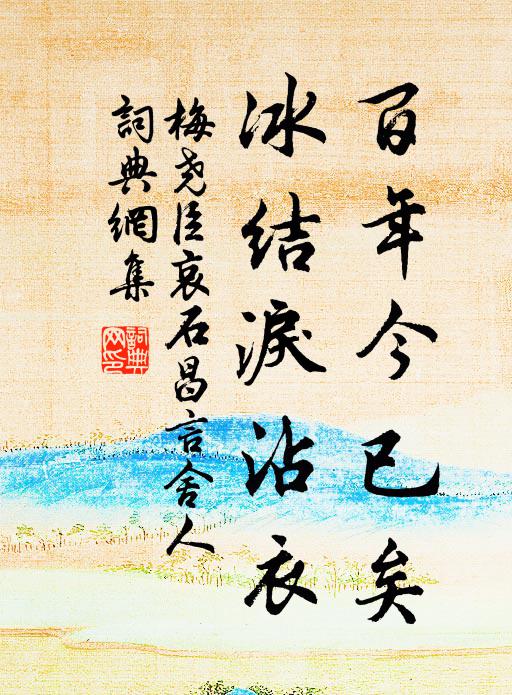 百年今已矣
冰结淚沾衣
梅尧臣哀石昌言舍人
詞典網集
詞典网印